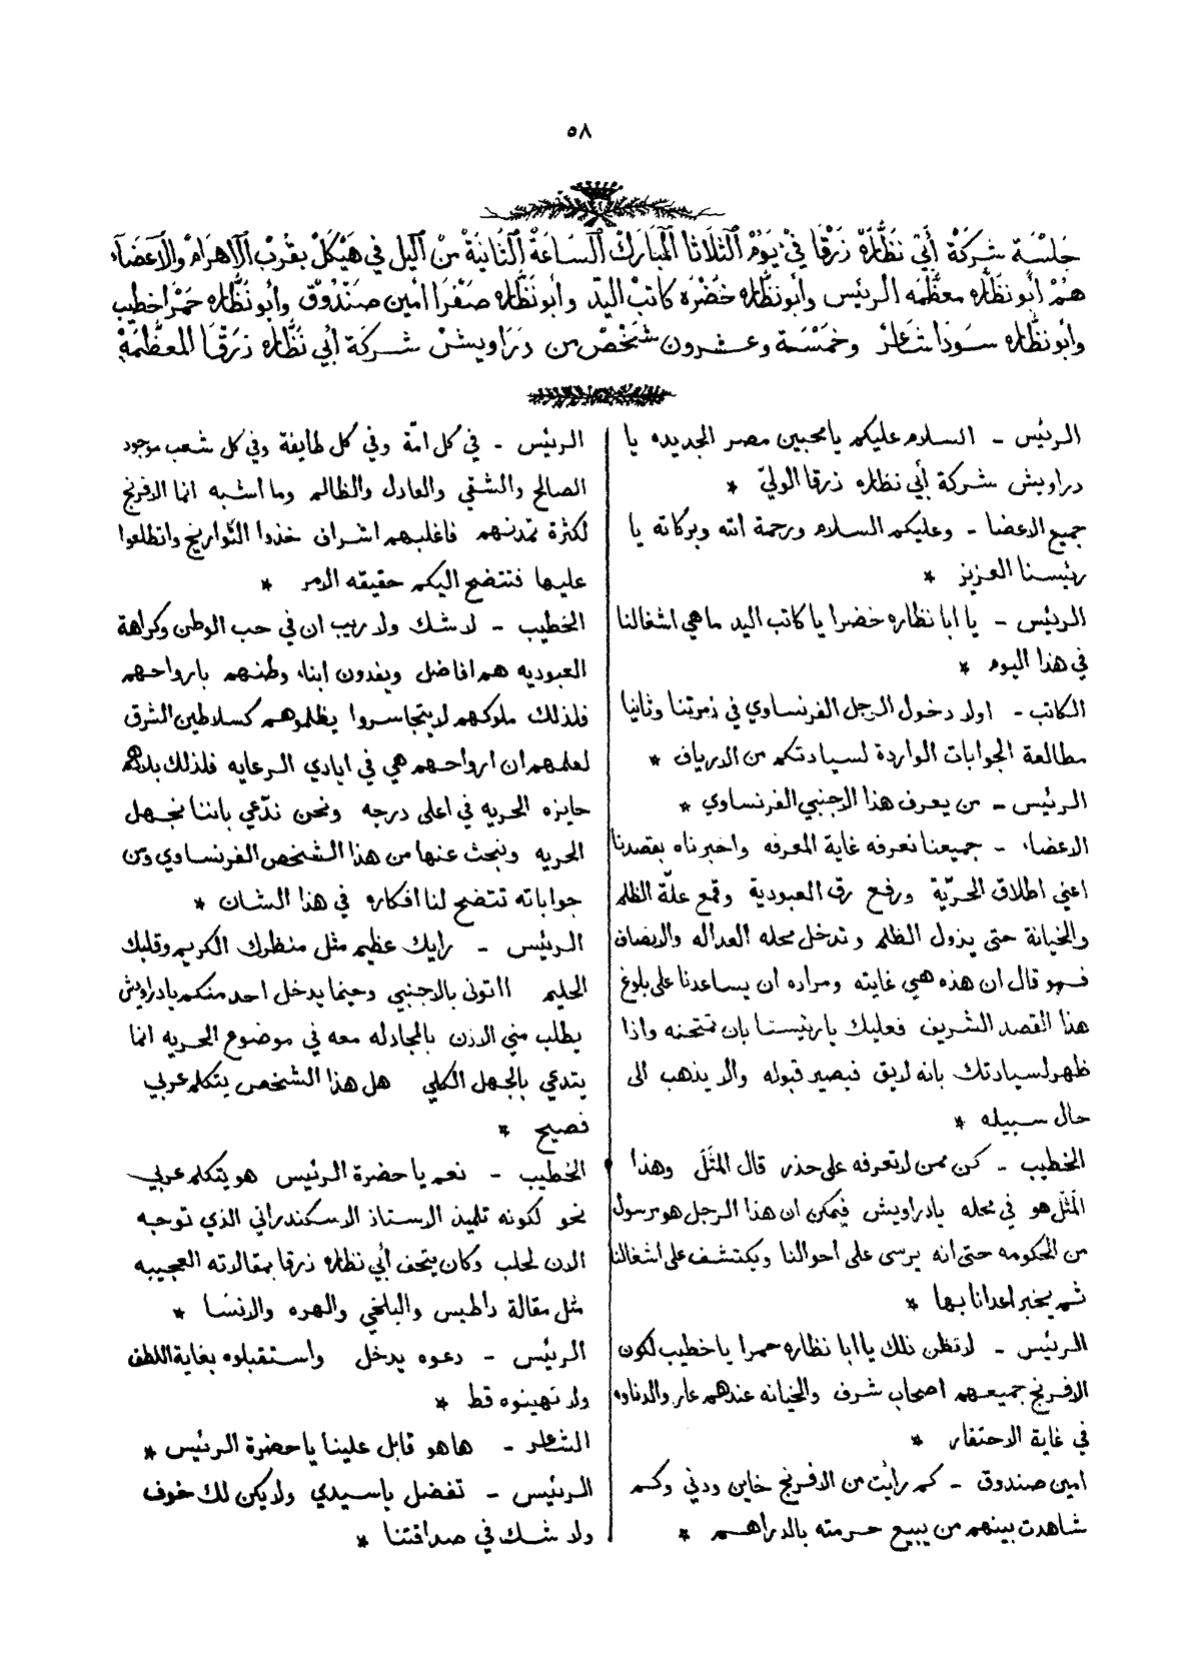 ٥٨
جَلْسَة شركَة أَبي نَظَّارَه زَرْقَا في يَوْم الثلَاثَا المُبَارَك السَّاعَة الثَّانِيَة مِن اليل في هَيْكَل بقُرْب الاهرَام والاعضَآء
هُمْ أبو نظاره معظّمه الرئيس وأبو نظاره خَضْرَه كاتب اليد وأبو نظاره صَفْرَا امين صَنْدُوق وأبو نَظَّاره حَمْرَا خطيب
وأبو نظاره سَوْدَا شَاعِر وخَمْسَة وعشرون شَخْص من دَرَاويش شركة أبي نَظَّاره زَرْقَا المعظّمَة
الرئيس - السلام عليكم يا محبين مصر الجديده يا
دراويش شركة أبي نظاره زرقا الوليّ *
جميع الاعضا - وعليكم السلام ورحمة الله وبركاته يا
رئيسنا العزيز *
الرئيس - يا ابا نظاره خضرا يا كاتب اليد ما هي اشغالنا
في هذا اليوم *
الكاتب - اولا دخول الرجل الفرنساوي في زمرتنا وثانيا
مطالعة الجوابات الواردة لسيادتكم من الارياف *
الرئيس - من يعرف هذا الاجنبي الفرنساوي *
الاعضاء - جميعنا نعرفه غاية المعرفه واخبرناه بقصدنا
اعني اطلاق الحريّة ورفع رق العبودية وقمع علّة الظلم
والخيانة حتى يزول الظلم وتدخل محله العداله والانصاف
فهو قال ان هذه هي غايته ومراده ان يساعدنا على بلوغ
هذا القصد الشريف فعليك يا رئيسنا بان تمتحنه واذا
ظهر لسيادتك بانه لايق فيصير قبوله والا يذهب الى
حال سبيله *
الخطيب - كن ممن لا تعرفه على حذر قال المثَل وهذا
المثل هو في محله يا دراويش فيمكن ان هذا الرجل هو مرسول
من الحكومه حتى انه يرسى على احوالنا ويكتشف على اشغالنا
ثم يخبر اعدانا بها *
الرئيس - لا تظن ذلك يا ابا نظاره حمرا يا خطيب لكون
الافرنج جميعهم اصحاب شرف والخيانه عندهم عار والدناوه
في غاية الاحتقار *
امين صندوق - كم رأيت من الافرنج خاين ودني وكم
شاهدت بينهم من يبيع حرمته بالدراهم *
الرئيس - في كل امّة وفي كل طايفة وفي كل شعب موجود
الصالح والشقي والعادل والظالم وما اشبه انما الافرنج
لكثرة تمدنهم فاغلبهم اشراف خذوا التواريخ واتطلعوا
عليها فتتضح اليكم حقيقه الامر *
الخطيب - لا شك ولا ريب ان في حب الوطن وكراهة
العبوديه هم افاضل ويفدون ابناء وطنهم بارواحهم
فلذلك ملوكهم لا يتجاسروا يظلموهم كسلاطين الشرق
لعلمهم ان ارواحهم هي في ايادي الرعايه فلذلك بلادهم
حايزه الحريه في اعلى درجه ونحن ندّعي باننا نجهل
الحريه ونبحث عنها من هذا الشخص الفرنساوي ومن
جواباته تتضح لنا افكاره في هذا الشان *
الرئيس - رايك عظيم مثل منظرك الكريم وقلبك
الحليم ااتونى بالاجنبي وحينما يدخل احد منكم يا دراويش
يطلب مني الاذن بالمجادله معه في موضوع الحريه انما
يتدعي بالجهل الكلي هل هذا الشخص يتكلم عربي
فصيح *
الخطيب - نعم يا حضرة الرئيس هو يتكلم عربي
نحو لكونه تلميذ الاستاذ الاسكندراني الذي توجه
الان لحلب وكان يتحف أبي نظاره زرقا بمقالاته العجيبه
مثل مقالة داطيس والبلخي والهره والانسَا *
الرئيس - دعوه يدخل واستقبلوه بغاية اللطف
ولا تهينوه قط *
الشاعر - ها هو قابل علينا يا حضرة الرئيس *
الرئيس - تفضل يا سيدي ولا يكن لك خوف
ولا شك في صداقتنا *